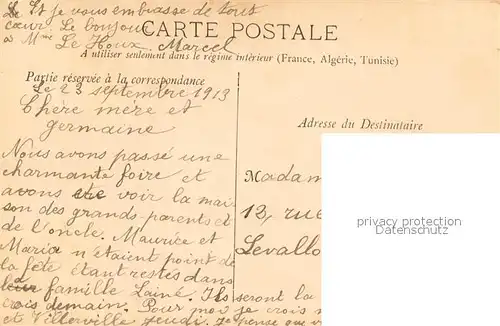 Et je vous embrasse de tout
cœur. Le bonjour
à Mme Le Houx. Marcel
CARTE POSTALE
A utiliser seulement dans le régime intérieur (France, Algérie, Tunisie)
Partie réservée à la correspondance
Le 23 septembre 1913
Chère mère et
germaine
Nous avons passé une
charmante foire et
avons été voir la mai
son des grands parents et
de l'oncle. Maurice et
Maria n'étaient point de
la fête étant restés dans
famille Lainé. Ils seront la
crois demain. Pour moi je crois
et Villerville jeudi. Je pense que
Adresse du Destinataire
Madam
12, rue
Levallo
privacy protection
Datenschutz